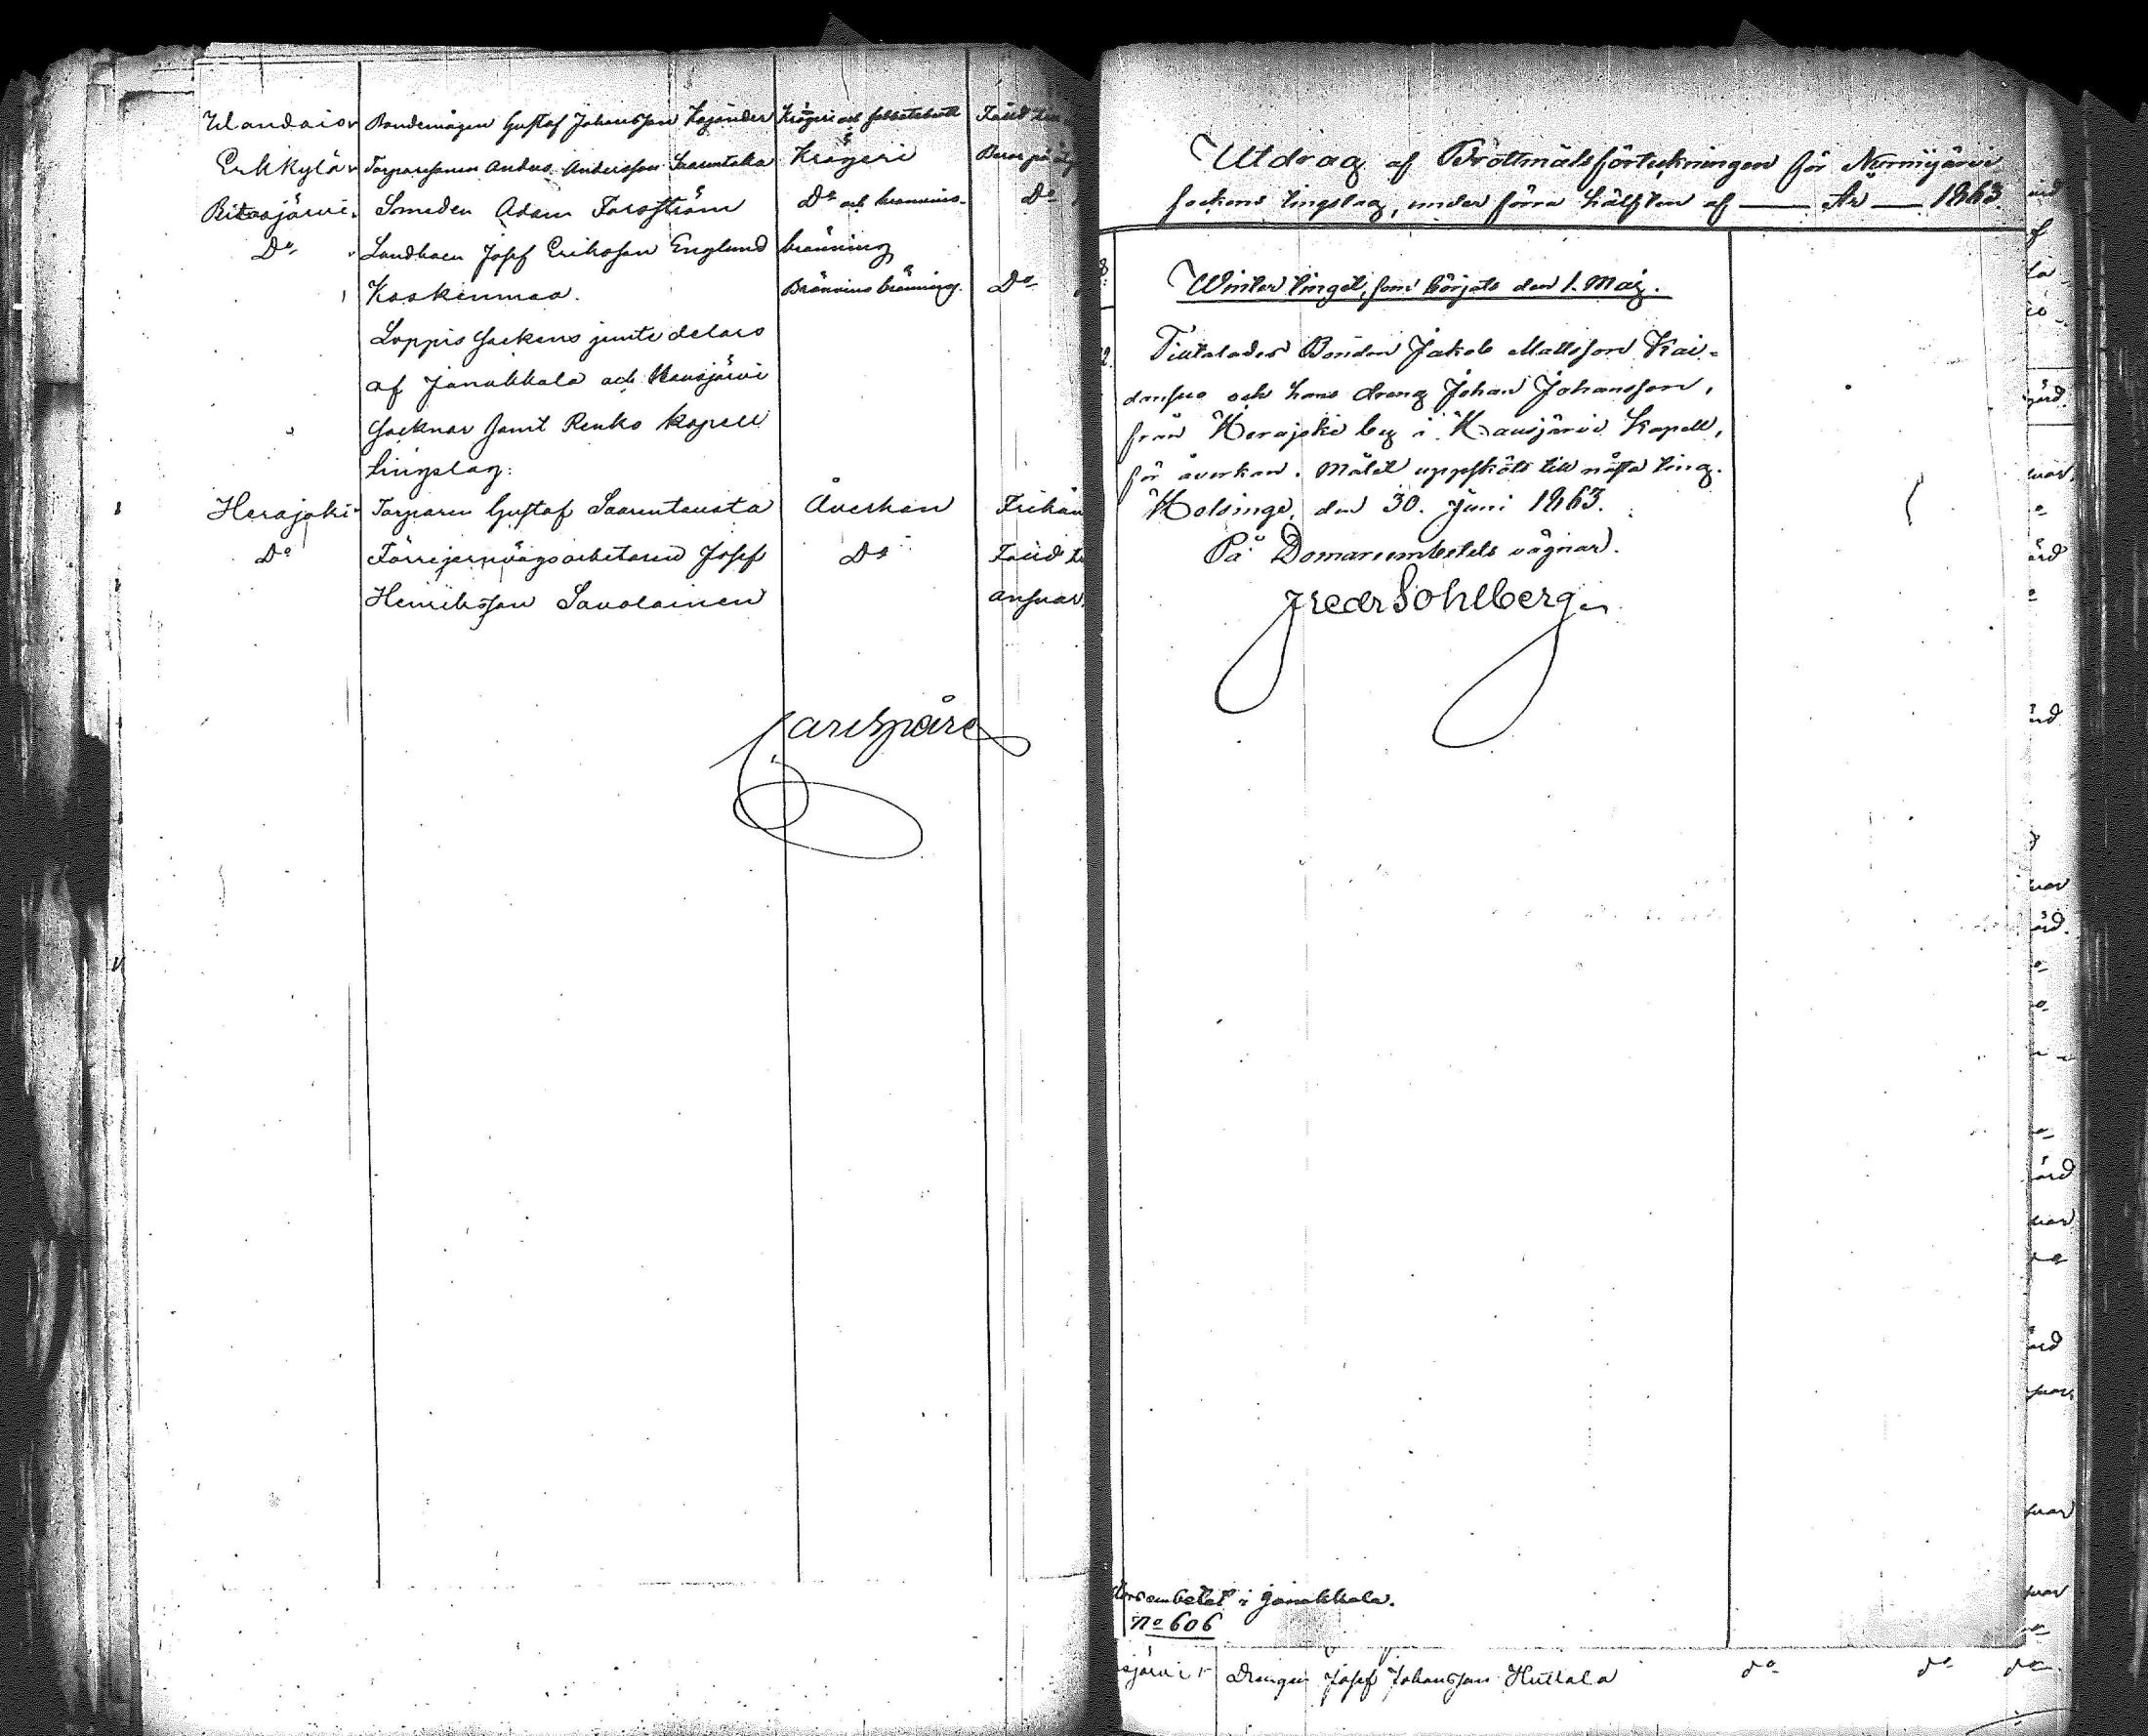 Bondemågen Gustaf Johansson Kajander Krögeri och sabbatsbrott Fälld
Erkkylä Torparesonen Anders Andersson Saarentaka Krögeri Beror på
Ritasjärvi Smeden Adam Forsström Do och brännvins- Do
Do Landboen Josef Eriksson Englund bränning
Koskenmaa. Brännvins bränning. Do
Loppis Sockens jemte delars
af Janakkala och Hausjärvi
Socknar samt Renko Kapell
tingslag:
Herajoki Torparen Gustaf Saarentausta Åverkan
Do Förrejernvägsarbetaren Josef Do Fälld
Henriksson Savolainen ansvar
Carl Spåre
Utdrag af Brottmålsförteckningen för Nurmijärvi
sockens tingslag, under förra hälften af — År — 1863.
Winter tinget, som börjats den 1. Maij.
Tilltalades Bonden Jakob Mattsson Kai-
dansuo och hans dräng Johan Johansson,
från Herajoki by i Hausjärvi Kapell,
för åverkan. Målet uppsköts till nästa ting.
Helsinge, den 30. Juni 1863.
På Domareembetets vägnar.
Fredr Sohlberg
embetet i Janakkala.
No 606
sjärvi Drengen Josef Johansson Huttala do do do